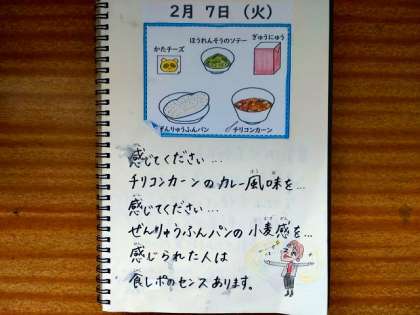 2月 7日 (火)
ほうれんそうのソテー
ぎゅうにゅう
かたチーズ
ぜんりゅうふんパン
チリコンカーン
感じてください…
チリコンカーンのカレー風味を…
感じてください…
ぜんりゅうふんパンの小麦感を…
感じられた人は
食レポのセンスあります。